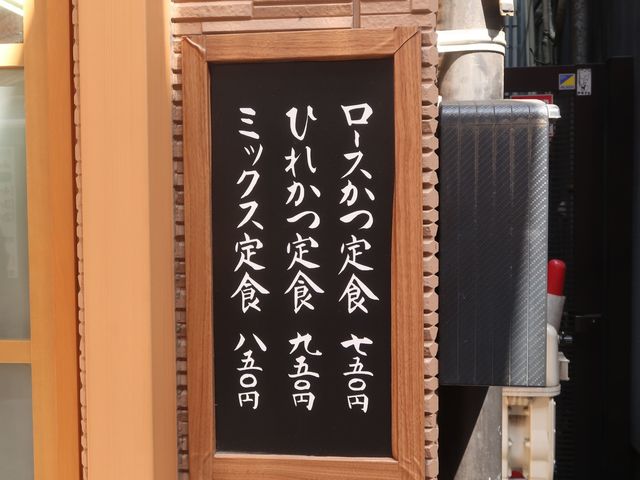 ロースかつ定食 七五〇円
ひれかつ定食 九五〇円
ミックス定食 八五〇円